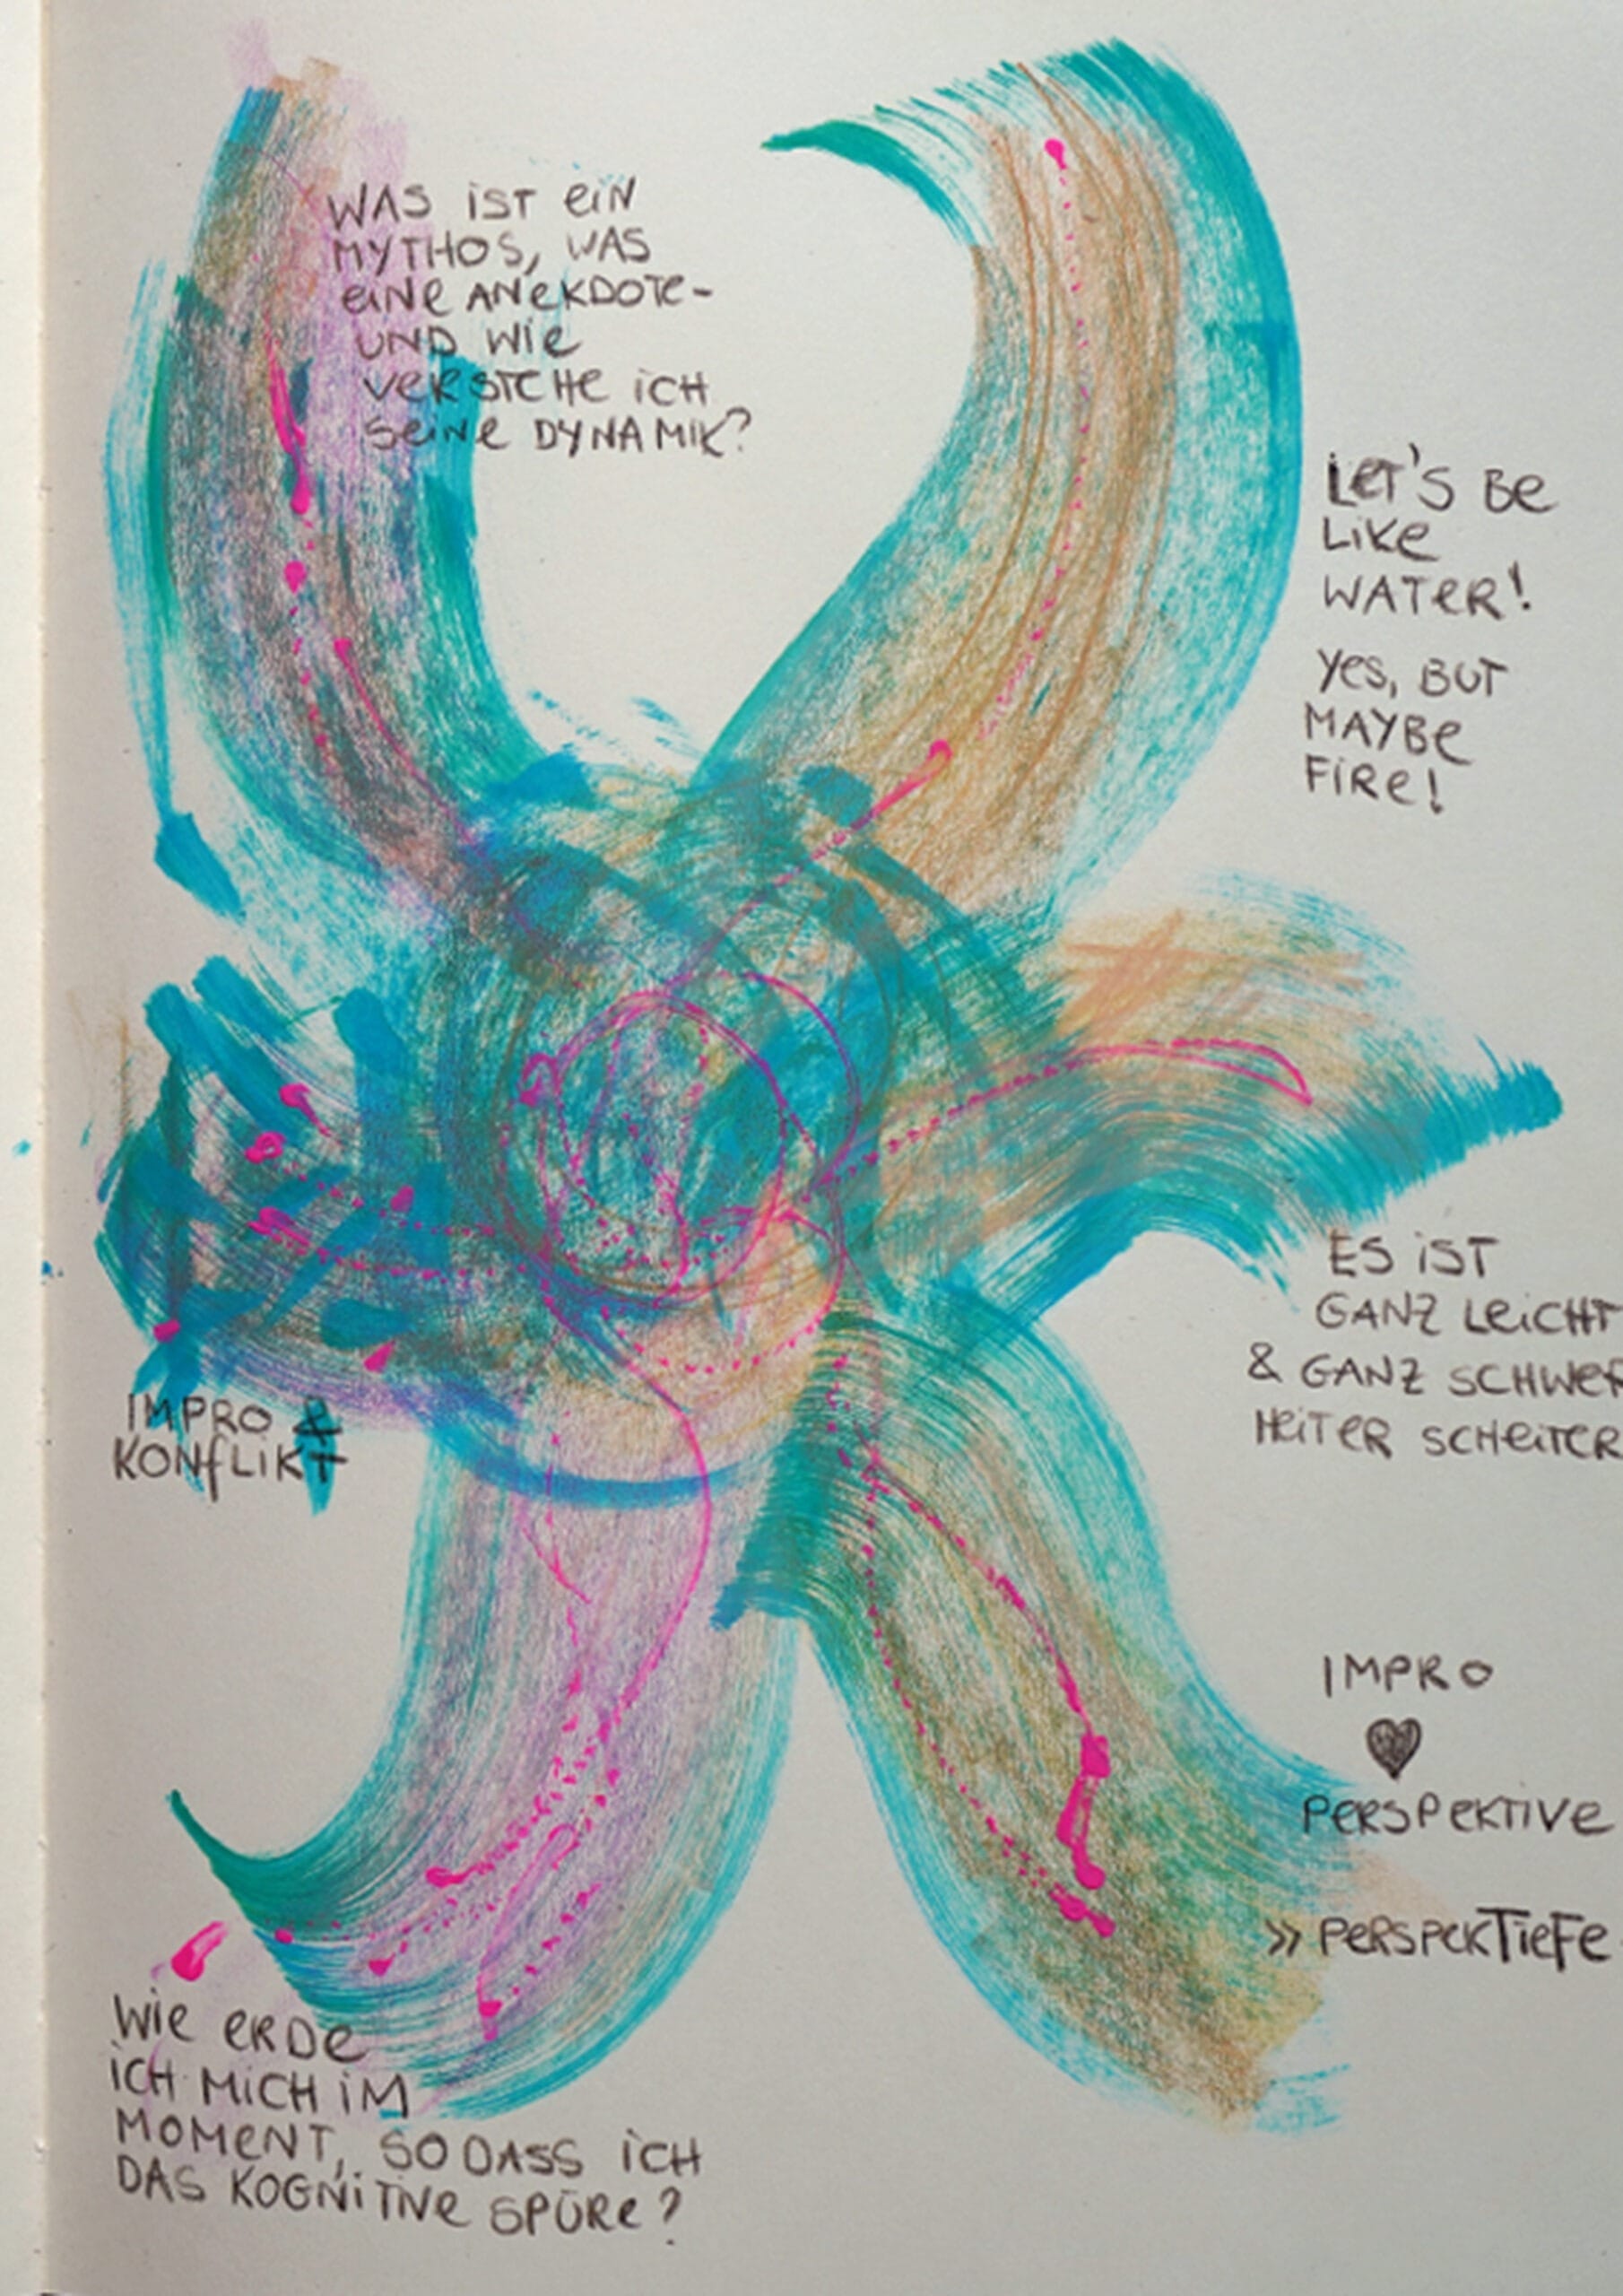 WAS IST EIN
MYTHOS, WAS
EINE ANEKDOTE-
UND WIE
VERSTEHE ICH
SEINE DYNAMIK?
LET'S BE
LIKE
WATER!
YES, BUT
MAYBE
FIRE!
ES IST
GANZ LEICHT
& GANZ SCHWER
HEITER SCHEITER
IMPRO &
KONFLIKT
IMPRO
♥
PERSPEKTIVE
» PERSPEKTIEFE
WIE ERDE
ICH MICH IM
MOMENT, SO DASS ICH
DAS KOGNITIVE SPÜRE?